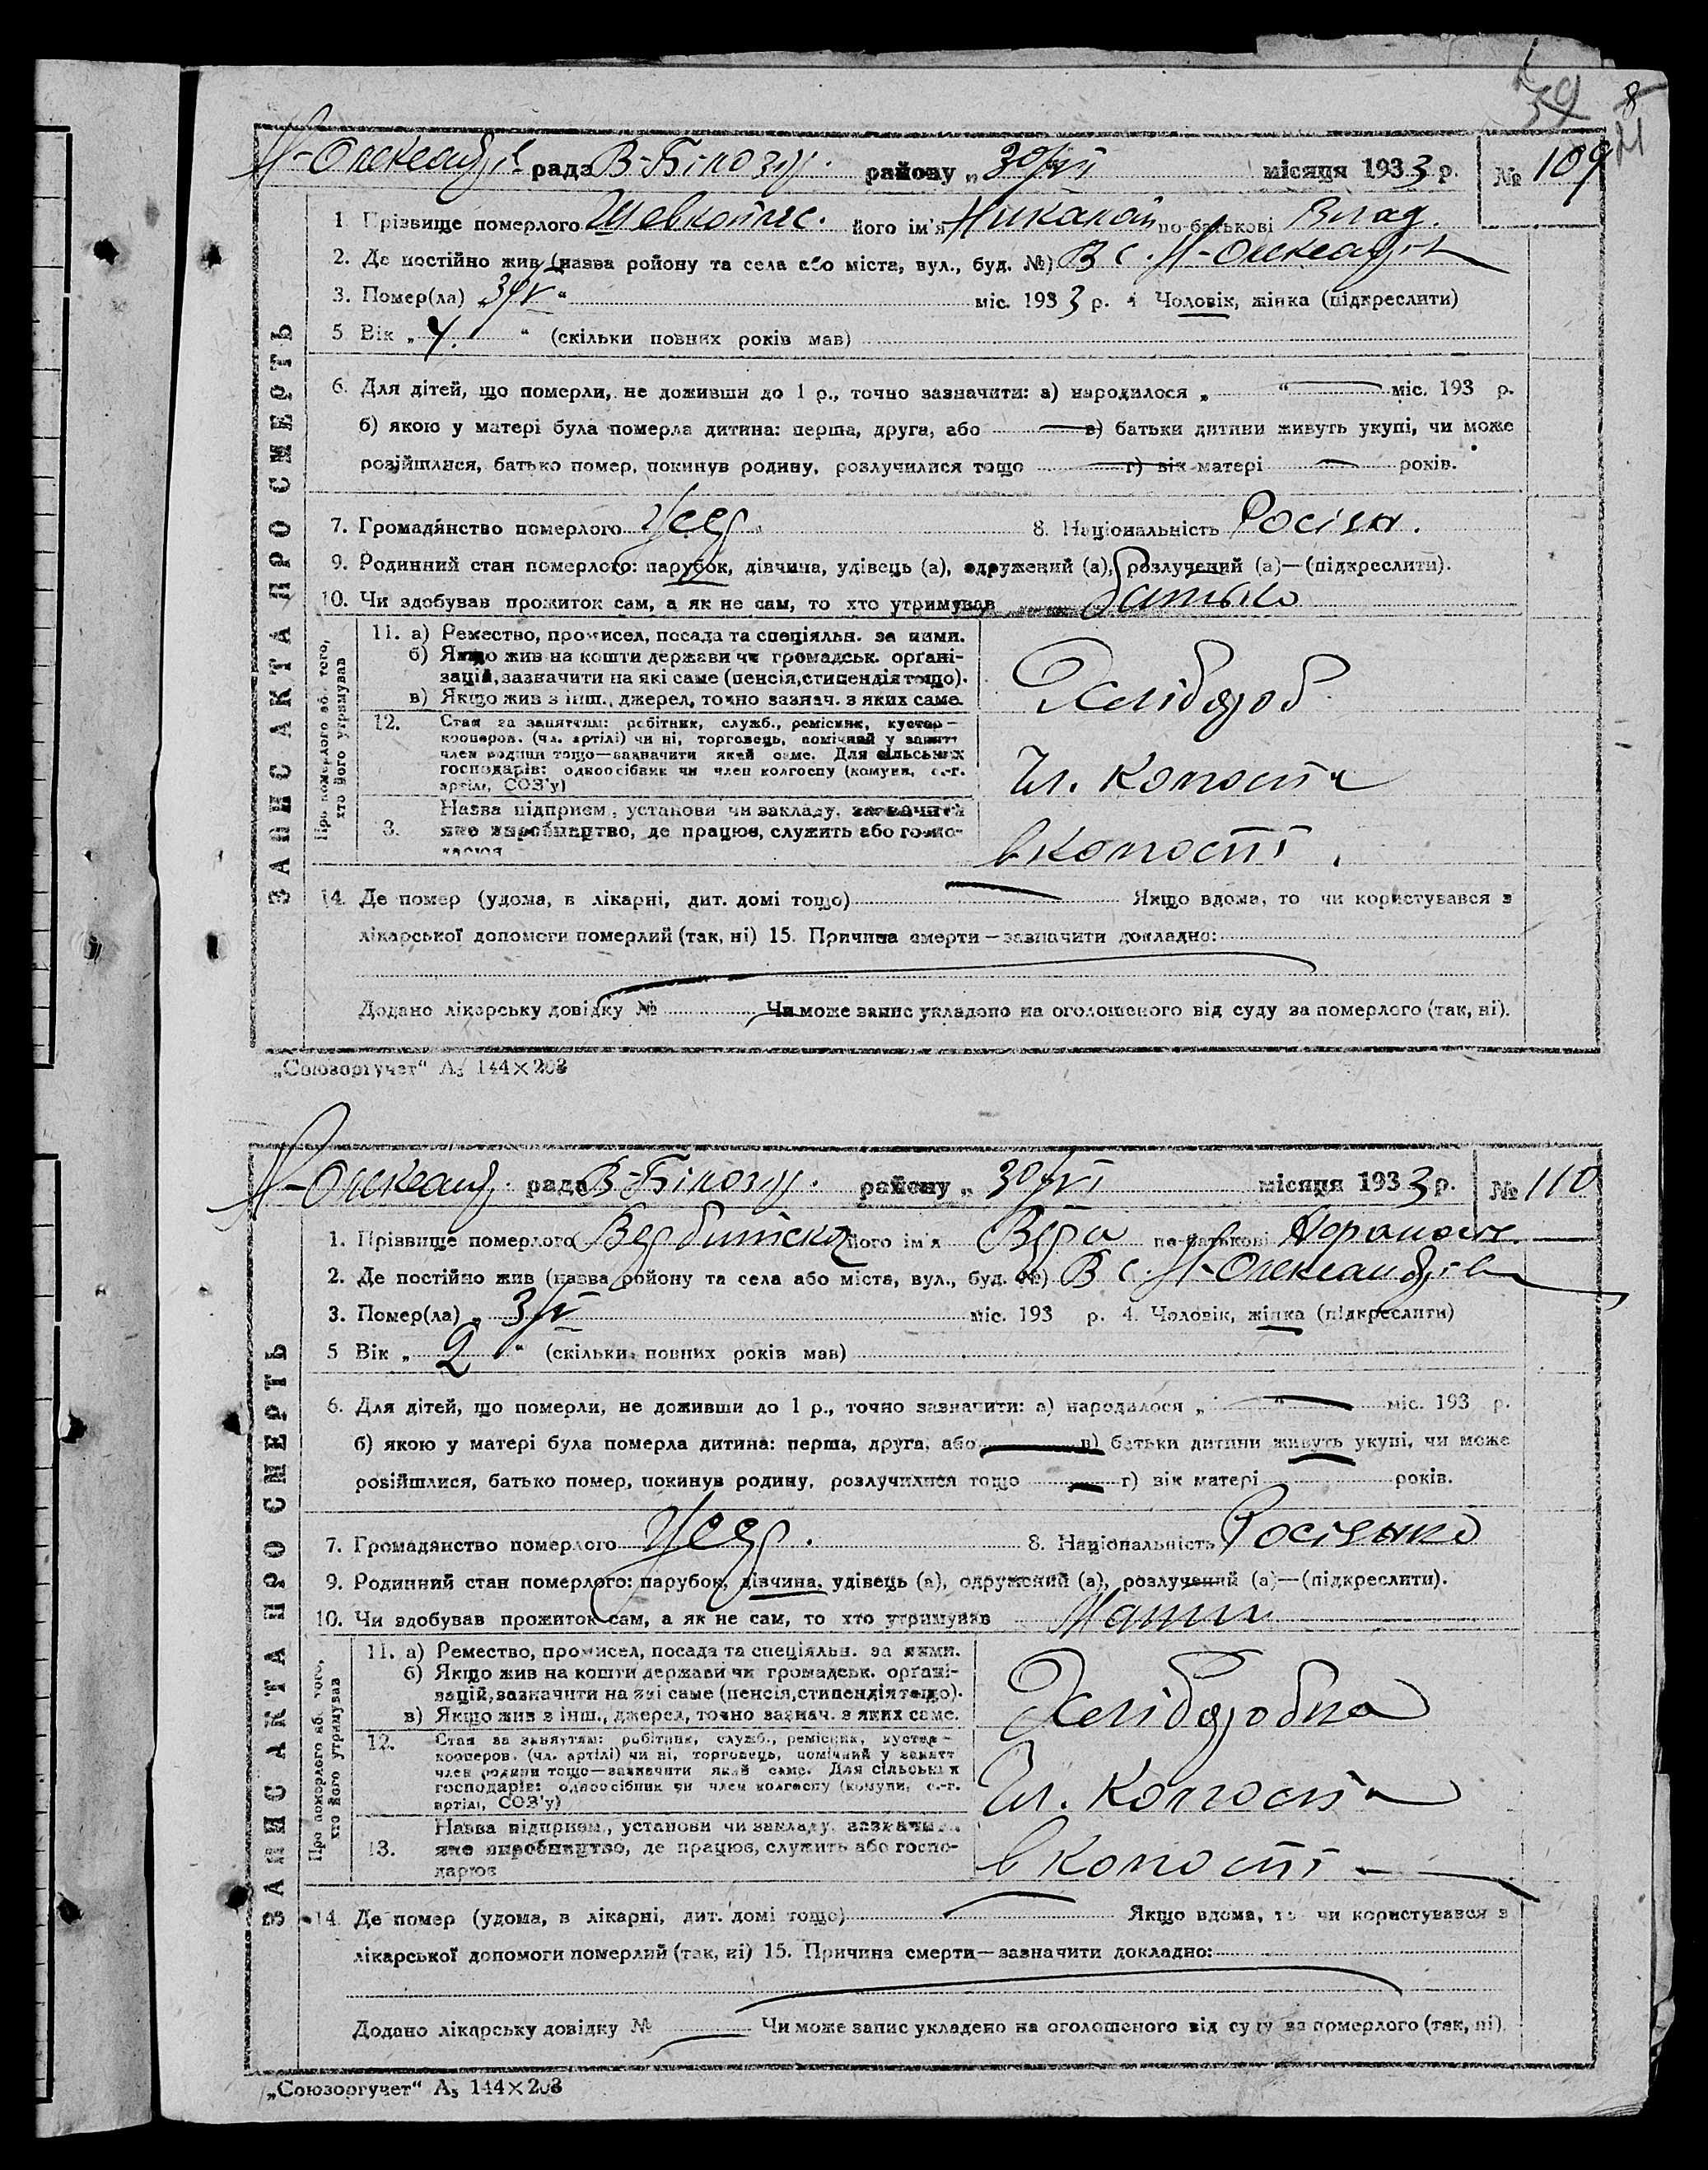 59 8
Н-Олександр. рада В-Білозір. району „ 30/VI місяця 1933 р. № 109
ЗАПИС АКТА ПРО СМЕРТЬ
1 Прізвище померлого його ім'я Николай по-батькові Влад.
2. Де постійно жив (назва ройону та села або міста, вул., буд. №) В с. Н-Олександрів
3. Помер(ла) 3/V “ міс. 1933 р. 4 Чоловік, жінка (підкреслити)
5 Вік „ 4. “ (скільки повних років мав)
6. Для дітей, що померли, не доживши до 1 р., точно зазначити: а) народилося „ “ міс. 193 р.
б) якою у матері була померла дитина: перша, друга, або в) батьки дитини живуть укупі, чи може
розійшлися, батько помер, покинув родину, розлучилися тощо г) вік матері років.
7. Громадянство померлого Усср. 8. Національність Росіян.
9. Родинний стан померлого: парубок, дівчина, удівець (а), одружений (а), розлучений (а)—(підкреслити).
10. Чи здобував прожиток сам, а як не сам, то хто утримував батько
Про померлого або того, хто його утримував
11. а) Ремество, промисел, посада та спеціяльн. за ними.
б) Якщо жив на кошти держави чи громадськ. органі-
зацій, зазначити на які саме (пенсія, стипендія тощо).
в) Якщо жив з інш., джерел, точно зазнач. з яких саме.
Хлібороб
12. Стан за заняттям: робітник, служб., ремісник, кустар-
кооперов. (чл. артілі) чи ні, торговець, помічний у занятт
член родини тощо—зазначити який саме. Для сільських
господарів: одноосібник чи член колгоспу (комуни, с.-г.
артілі, СОЗ'у)
Чл. колгоспа
3. Назва підприєм., установи чи закладу, зазначити
яке виробництво, де працює, служить або госпо-
дарює
в колгоспі.
14. Де помер (удома, в лікарні, дит. домі тощо) Якщо вдома, то чи користувався з
лікарської допомоги померлий (так, ні) 15. Причина смерти—зазначити докладно:
Додано лікарську довідку № Чи може запис укладено на оголошеного від суду за померлого (так, ні).
„Союзоргучет“ А5 144×203
Н-Олександ. рада В-Білозір. району „ 30/VI місяця 1933 р. № 110
ЗАПИС АКТА ПРО СМЕРТЬ
1. Прізвище померлого його ім'я Вера по-батькові
2. Де постійно жив (назва ройону та села або міста, вул., буд. №) В с. Н-Олександрів
3. Помер(ла) „ 3/V міс. 193 р. 4. Чоловік, жінка (підкреслити)
5 Вік „ 2 “ (скільки повних років мав)
6. Для дітей, що померли, не доживши до 1 р., точно зазначити: а) народилося „ “ міс. 193 р.
б) якою у матері була померла дитина: перша, друга, або в) батьки дитини живуть укупі, чи може
розійшлися, батько помер, покинув родину, розлучилися тощо г) вік матері років.
7. Громадянство померлого Усср. 8. Національність Росіянка
9. Родинний стан померлого: парубок, дівчина, удівець (а), одружений (а), розлучений (а)—(підкреслити).
10. Чи здобував прожиток сам, а як не сам, то хто утримував Мати
Про померлого або того, хто його утримував
11. а) Ремество, промисел, посада та спеціяльн. за ними.
б) Якщо жив на кошти держави чи громадськ. органі-
зацій, зазначити на які саме (пенсія, стипендія тощо).
в) Якщо жив з інш., джерел, точно зазнач. з яких саме.
Хліборобка
12. Стан за заняттям: робітник, служб., ремісник, кустар-
кооперов. (чл. артілі) чи ні, торговець, помічний у занятт
член родини тощо—зазначити який саме. Для сільських
господарів: одноосібник чи член колгоспу (комуни, с.-г.
артілі, СОЗ'у)
Чл. колгоспа
13. Назва підприєм., установи чи закладу, зазначити
яке виробництво, де працює, служить або госпо-
дарює
в колгоспі
14. Де помер (удома, в лікарні, дит. домі тощо) Якщо вдома, то чи користувався з
лікарської допомоги померлий (так, ні) 15. Причина смерти—зазначити докладно:
Додано лікарську довідку № Чи може запис укладено на оголошеного від суду за померлого (так, ні).
„Союзоргучет“ А5 144×203